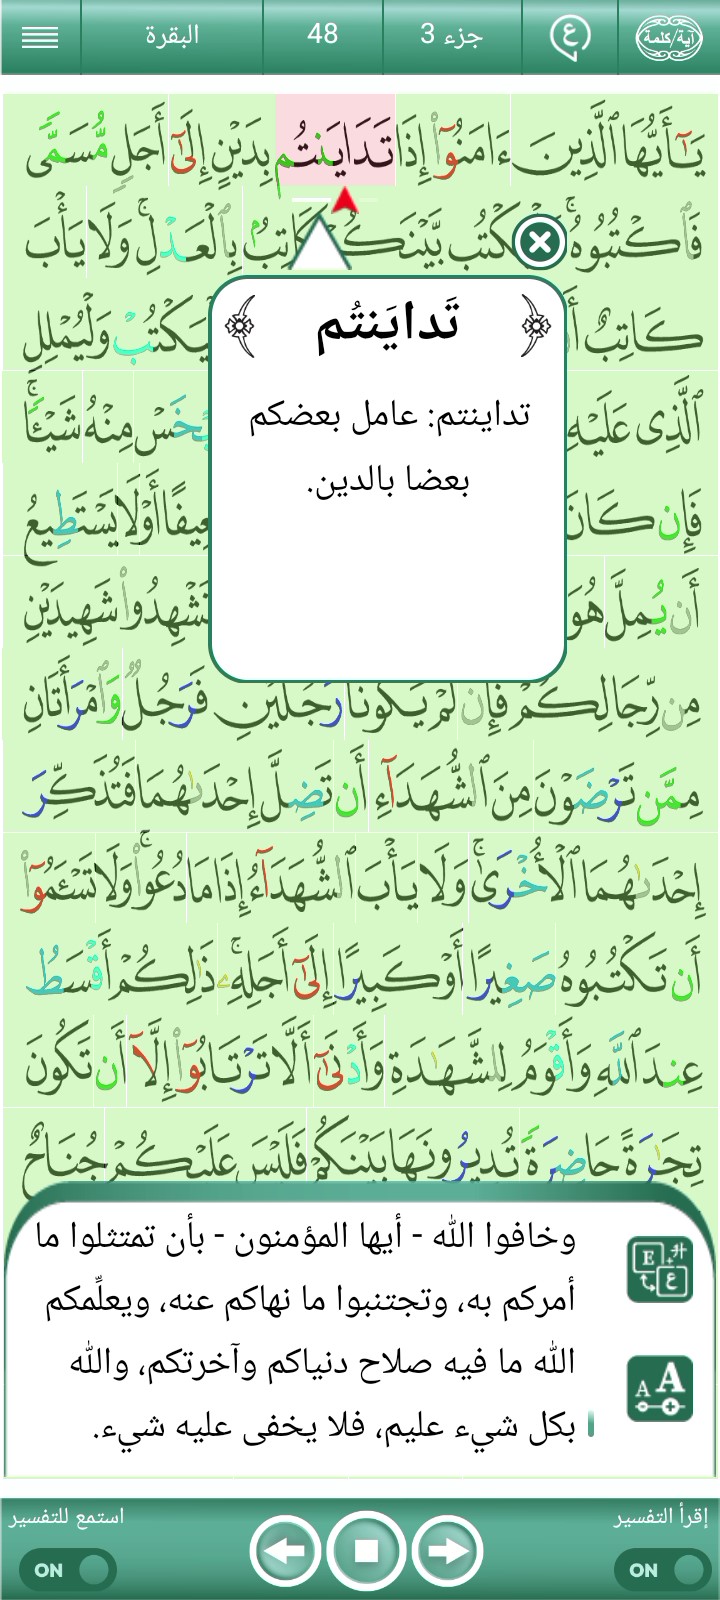 آية/كلمة ع جزء 3 48 البقرة
يَـٰٓأَيُّهَا ٱلَّذِينَ ءَامَنُوٓا۟ إِذَا تَدَايَنتُم بِدَيْنٍ إِلَىٰٓ أَجَلٍ مُّسَمًّى
فَٱكْتُبُوهُ ۚ كْتُب بَّيْنَكُمْ كَاتِبٌۢ بِٱلْعَدْلِ ۚ وَلَا يَأْبَ
كَاتِبٌ يَكْتُبْ وَلْيُمْلِلِ
ٱلَّذِى عَلَيْهِ مِنْهُ شَيْـًٔا ۚ
فَإِن كَانَ أَوْ لَا يَسْتَطِيعُ
أَن يُمِلَّ هُوَ شَهِيدَيْنِ
مِن رِّجَالِكُمْ ۖ فَإِن لَّمْ يَكُونَا رَجُلَيْنِ فَرَجُلٌ وَٱمْرَأَتَانِ
مِمَّن تَرْضَوْنَ مِنَ ٱلشُّهَدَآءِ أَن تَضِلَّ إِحْدَىٰهُمَا فَتُذَكِّرَ
إِحْدَىٰهُمَا ٱلْأُخْرَىٰ ۚ وَلَا يَأْبَ ٱلشُّهَدَآءُ إِذَا مَا دُعُوا۟ ۚ وَلَا تَسْـَٔمُوٓا۟
أَن تَكْتُبُوهُ صَغِيرًا أَوْ كَبِيرًا إِلَىٰٓ أَجَلِهِۦ ۚ ذَٰلِكُمْ أَقْسَطُ
عِندَ ٱللَّهِ وَأَقْوَمُ لِلشَّهَـٰدَةِ وَأَدْنَىٰٓ أَلَّا تَرْتَابُوٓا۟ ۖ إِلَّآ أَن تَكُونَ
تِجَـٰرَةً حَاضِرَةً تُدِيرُونَهَا بَيْنَكُمْ فَلَيْسَ عَلَيْكُمْ جُنَاحٌ
تَدايَنتُم
تداينتم: عامل بعضكم
بعضا بالدين.
وخافوا الله - أيها المؤمنون - بأن تمتثلوا ما
أمركم به، وتجتنبوا ما نهاكم عنه، ويعلِّمكم
الله ما فيه صلاح دنياكم وآخرتكم، والله
بكل شيء عليم، فلا يخفى عليه شيء.
E ع
A A
إقرأ التفسير استمع للتفسير
ON ON